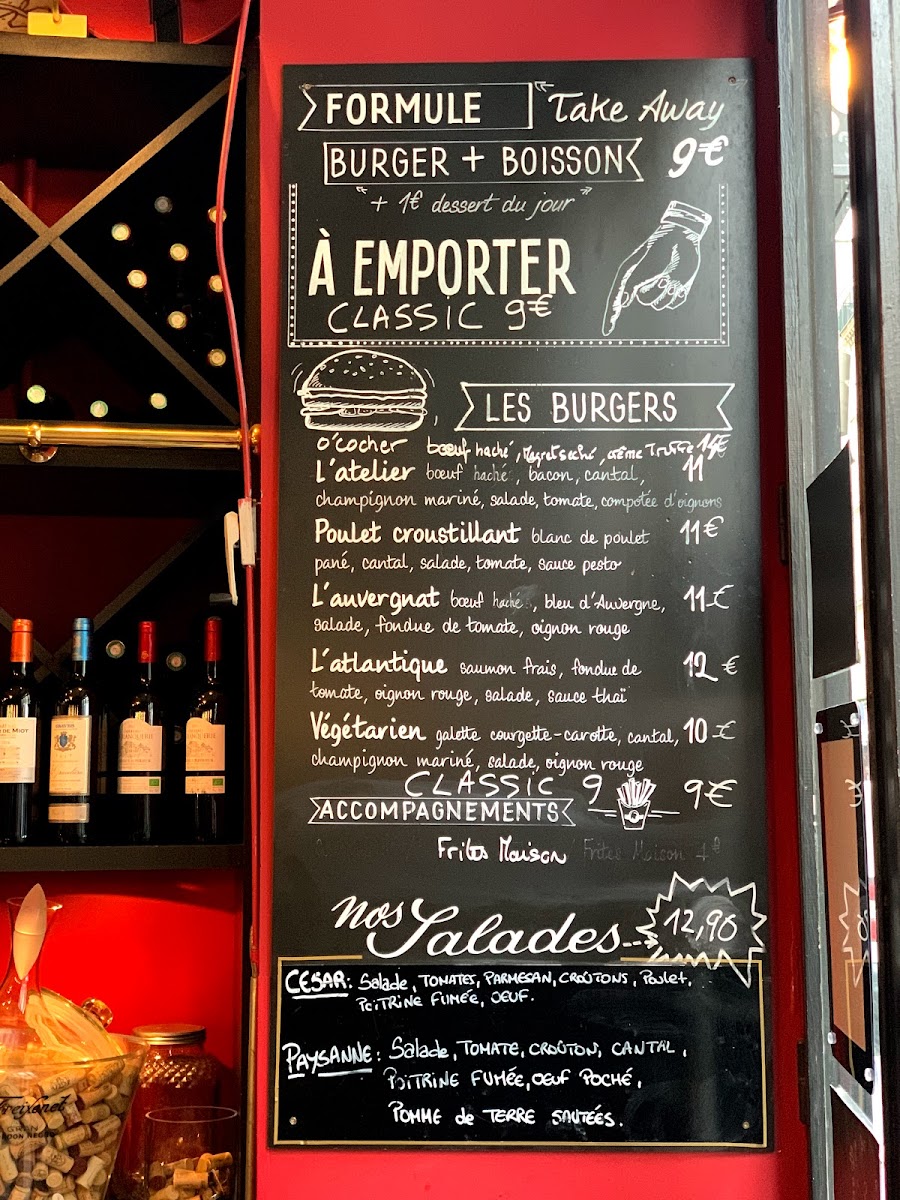 FORMULE "Take Away
BURGER + BOISSON 9€
"+ 1€ dessert du jour"
À EMPORTER
CLASSIC 9€
LES BURGERS
O'cocher bœuf haché, Magret séché, crème Truffe 14€
L'atelier bœuf haché, bacon, cantal, 11
champignon mariné, salade, tomate, compotée d'oignons
Poulet croustillant blanc de poulet 11€
pané, cantal, salade, tomate, sauce pesto
L'auvergnat bœuf haché, bleu d'Auvergne, 11€
salade, fondue de tomate, oignon rouge
L'atlantique saumon frais, fondue de 12€
tomate, oignon rouge, salade, sauce thaï
Végétarien galette courgette-carotte, cantal, 10€
champignon mariné, salade, oignon rouge
CLASSIC 9 9€
ACCOMPAGNEMENTS
Frites Maison Frites Maison
nos Salades 12,90
CESAR: Salade, TOMATES, PARMESAN, CROÛTONS, Poulet,
POITRINE FUMÉE, OEUF.
PAYSANNE: Salade, TOMATE, CROÛTON, CANTAL,
POITRINE FUMÉE, OEUF POCHÉ,
POMME de TERRE SAUTÉES.
Freixenet
GRAN